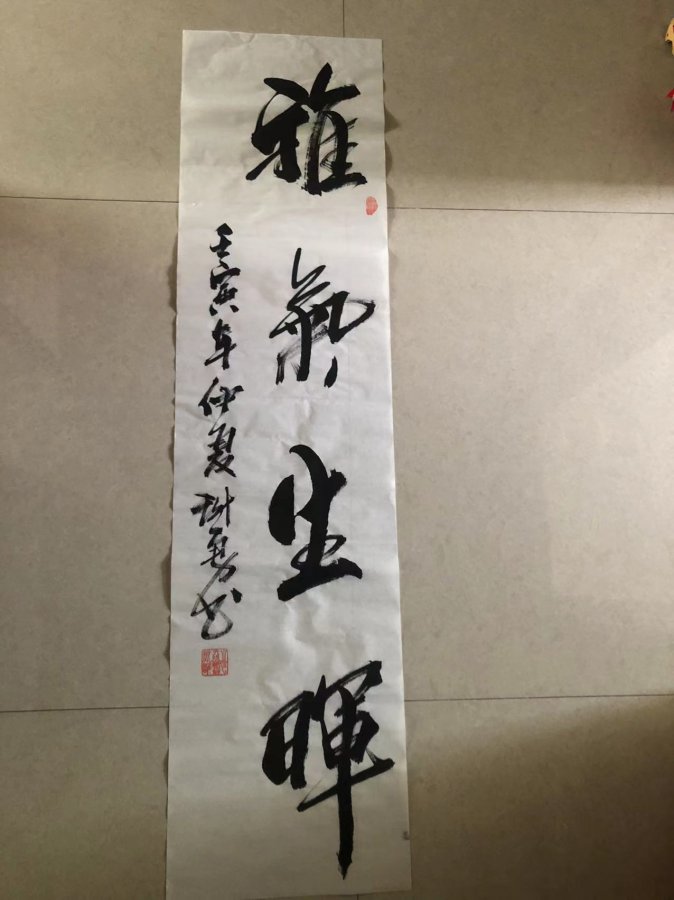 雅氣生暉
壬寅年仲夏勇书